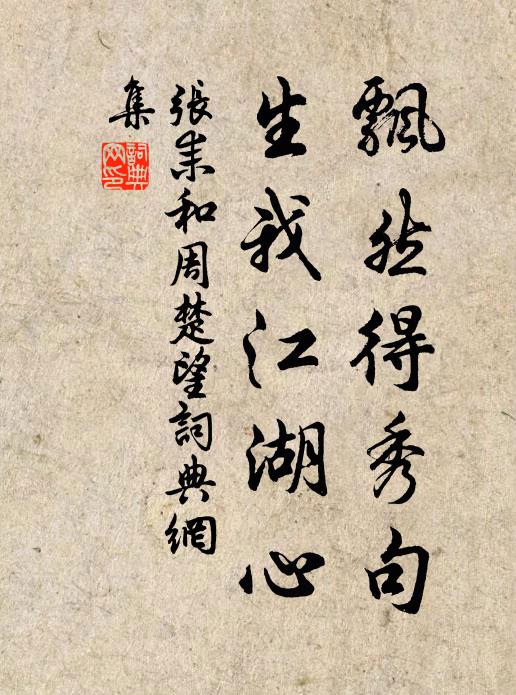 飄然得秀句
生我江湖心
張耒和周楚望詞典網
集
詞典
网印